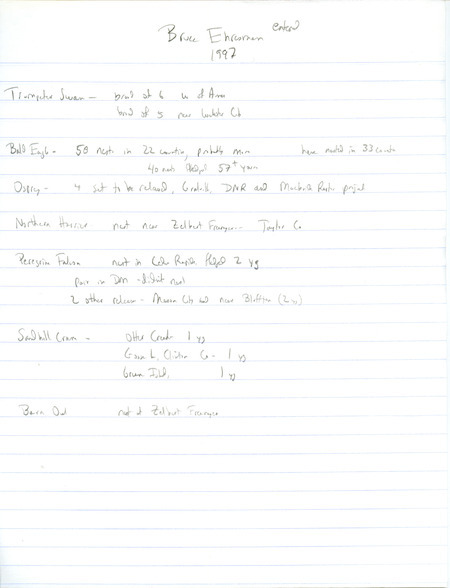 Bruce Ehresman entered
1997
Trumpeter Swan - brood of 6 W of Ames
brood of 5 near
Bald Eagle - 58 nests in 22 counties, probably more have nested in 33 counties
40 nests fledged 57+ young
Osprey - 4 set to be released, DNR and Macbride Raptor project
Northern Harrier nest near Zelbert Freyer - Taylor Co
Peregrine Falcon nest in Cedar Rapids fledged 2 yg
pair in DM - didnt nest
2 other release - Mason City and near Bluffton (2 yg)
Sandhill Crane - Otter Creek 1 yg
Goose L, Clinton Co - 1 yg
Green Isld, 1 yg
Barn Owl nest at